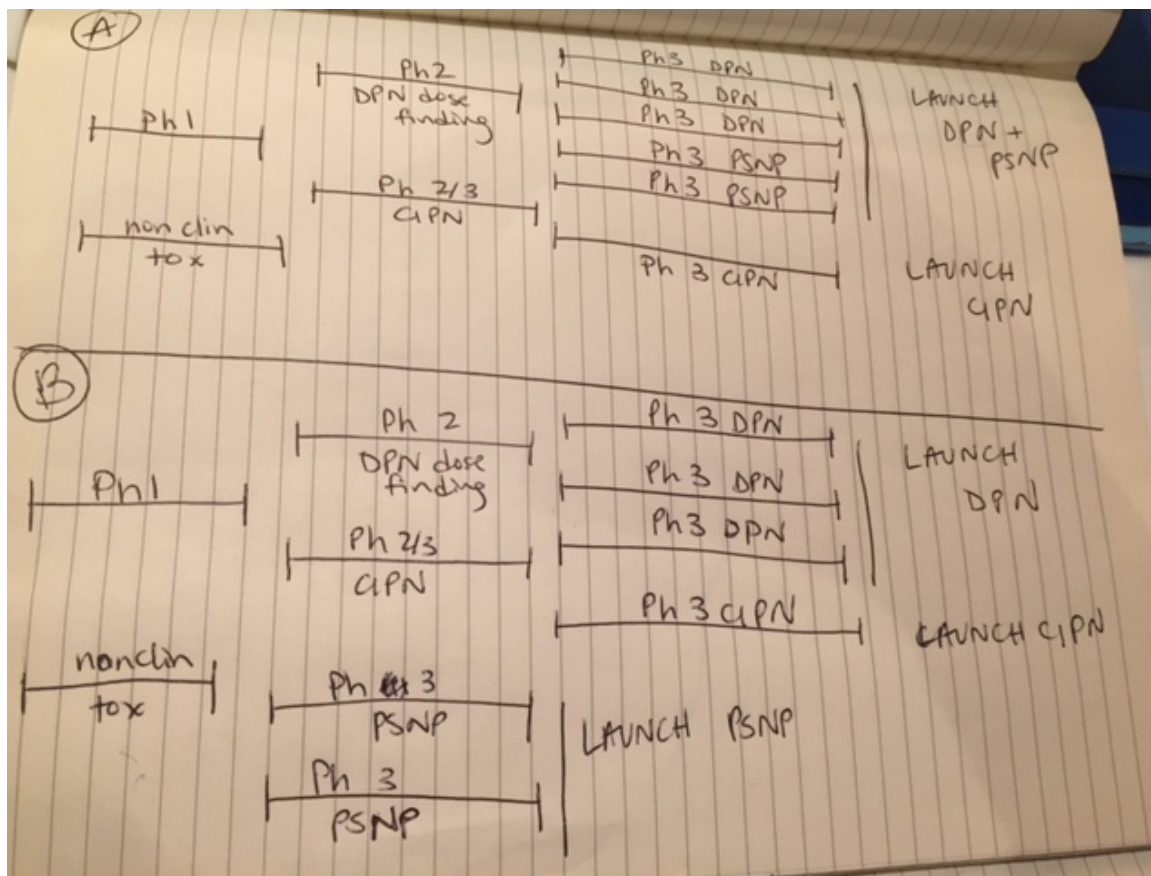 A
Ph1
nonclin
tox
Ph2
DPN dose
finding
Ph 2/3
CIPN
Ph3 DPN
Ph3 DPN
Ph3 DPN
Ph3 PSNP
Ph3 PSNP
Ph 3 CIPN
LAUNCH
DPN +
PSNP
LAUNCH
CIPN
B
Ph1
nonclin
tox
Ph 2
DPN dose
finding
Ph 2/3
CIPN
Ph 3
PSNP
Ph 3
PSNP
Ph 3 DPN
Ph 3 DPN
Ph3 DPN
Ph 3 CIPN
LAUNCH
DPN
LAUNCH CIPN
LAUNCH PSNP